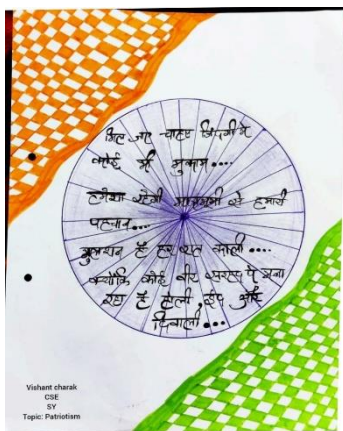 मिल जाए चाहए जिंदगी में
कोई भी मुकाम....
हमेशा रहेगी मातृभूमी से हमारी
पहचान....
गुलशन है हर रात काली....
क्योंकि कोई वीर सरहद पे मना
रहा है होली, ईद और
दिवाली...
Vishant charak
CSE
SY
Topic: Patriotism